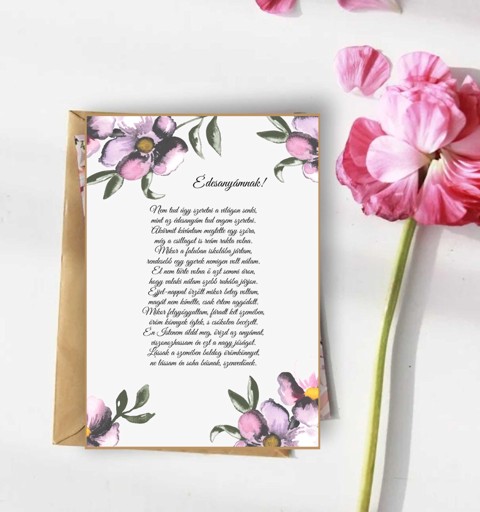 Édesanyámnak!
Nem tud úgy szeretni a világon senki,
mint az édesanyám tud engem szeretni.
Akármit kívántam megtette egy szóra,
még a csillagot is reám rakta volna.
Mikor a faluban iskolába jártam,
rendesebb egy gyerek nemigen volt nálam.
El nem tűrte volna ő azt semmi áron,
hogy valaki nálam szebb ruhába járjon.
Éjjel-nappal őrzött mikor beteg voltam,
magát nem kímélte, csak értem aggódott.
Mikor felgyógyultam, fáradt két szemében,
öröm könnyek égtek, s csókolva becézett.
Én Istenem áldd meg, őrizd az anyámat,
viszonozhassam én ezt a nagy jóságot.
Lássak a szemében boldog örömkönnyet,
ne lássam én soha búsnak, szenvedőnek.